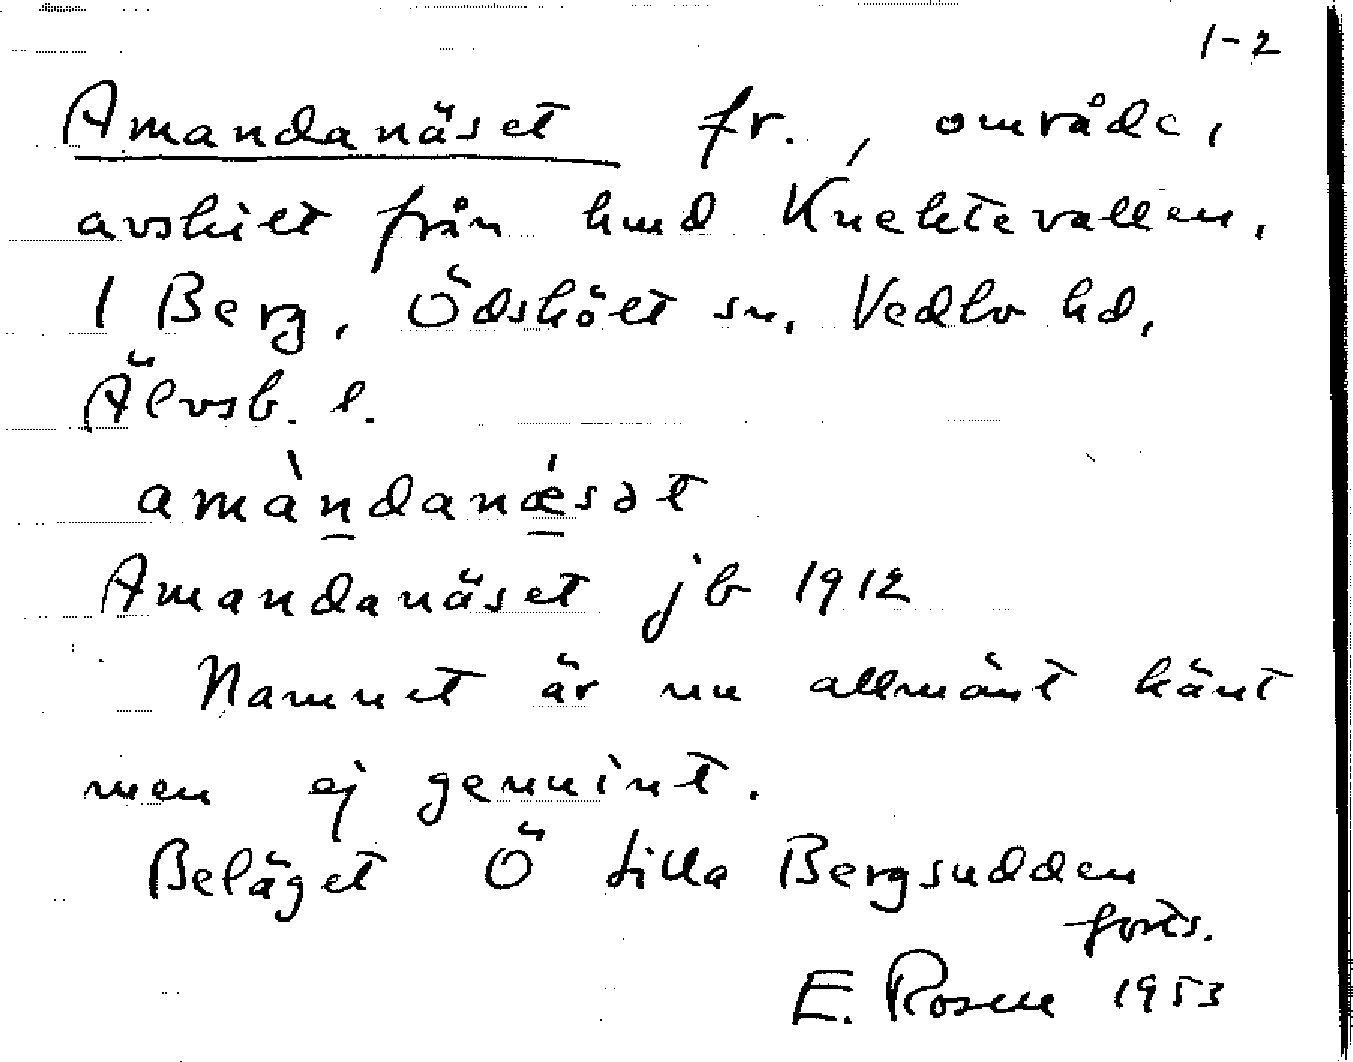 1-2
Amandanäset fr., område,
avskilt från hmd Knektevallen,
1 Berg, Ödskölt sn, Vedbo hd,
Älvsb. l.
amàndanǽsət
Amandanäset jb 1912
Namnet är nu allmänt känt
men ej genuint.
Beläget Ö Lilla Bergsudden
forts.
E. Rosell 1953